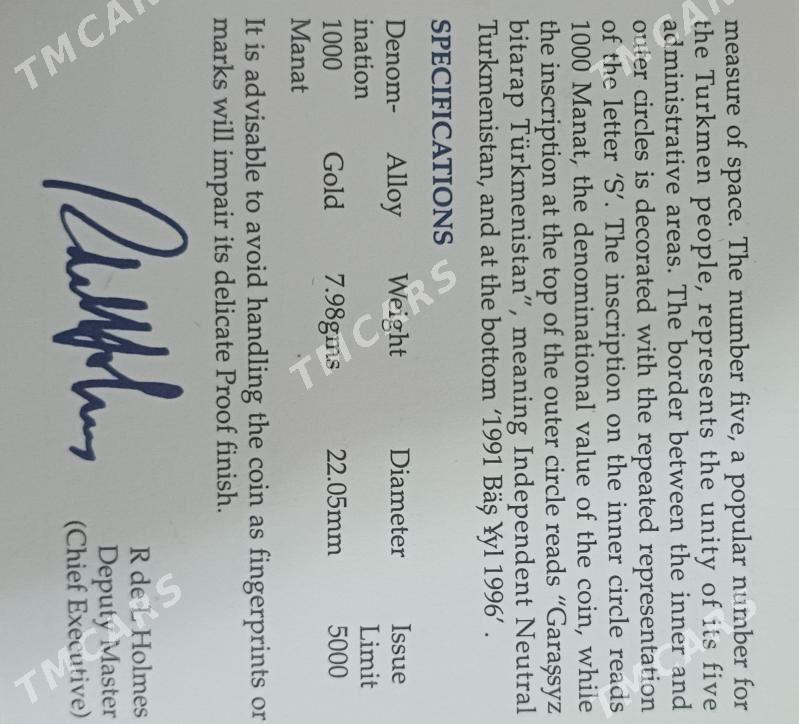 measure of space. The number five, a popular number for
the Turkmen people, represents the unity of its five
administrative areas. The border between the inner and
outer circles is decorated with the repeated representation
of the letter ‘S’. The inscription on the inner circle reads
1000 Manat, the denominational value of the coin, while
the inscription at the top of the outer circle reads “Garaşsyz
bitarap Türkmenistan”, meaning Independent Neutral
Turkmenistan, and at the bottom ‘1991 Bäş ¥yl 1996’ .
SPECIFICATIONS
Denom- Alloy Weight Diameter Issue
ination Limit
1000 Gold 7.98gms 22.05mm 5000
Manat
It is advisable to avoid handling the coin as fingerprints or
marks will impair its delicate Proof finish.
R de L Holmes
Deputy Master
(Chief Executive)
TMCARS
TMCARS
TMCARS
TMCARS
TMCARS